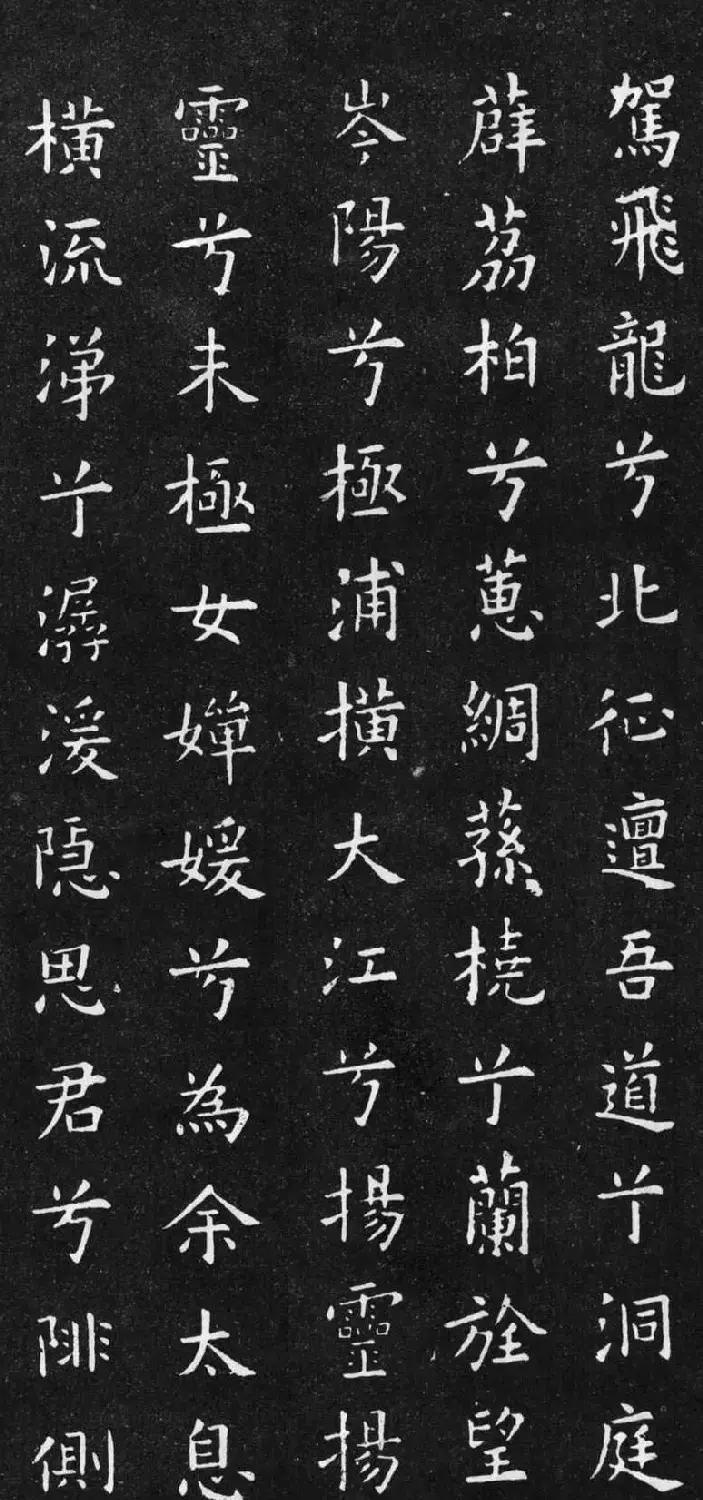 駕飛龍兮北征邅吾道兮洞庭
薜荔柏兮蕙綢蓀橈兮蘭旌望
岑陽兮極浦橫大江兮揚靈揚
靈兮未極女嬋媛兮為余太息
橫流涕兮潺湲隱思君兮陫側